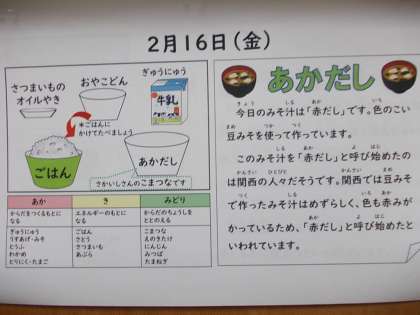 2月16日(金)
さつまいもの
オイルやき
おやこどん
ぎゅうにゅう
牛乳
*ごはんに
かけてたべましょう
ごはん
あかだし
さかいしさんのこまつなです
あか
き
みどり
からだをつくるもとに
なる
エネルギーのもとに
なる
からだのちょうしを
ととのえる
ぎゅうにゅう
うすあげ・みそ
とうふ
わかめ
とりにく・たまご
ごはん
さとう
さつまいも
あぶら
こまつな
えのきたけ
にんじん
みつば
たまねぎ
あかだし
今日のみそ汁は「赤だし」です。色のこい
豆みそを使って作っています。
このみそ汁を「赤だし」と呼び始めたの
は関西の人々だそうです。関西では豆みそ
で作ったみそ汁はめずらしく、色も赤みが
かっているため、「赤だし」と呼び始めたと
いわれています。